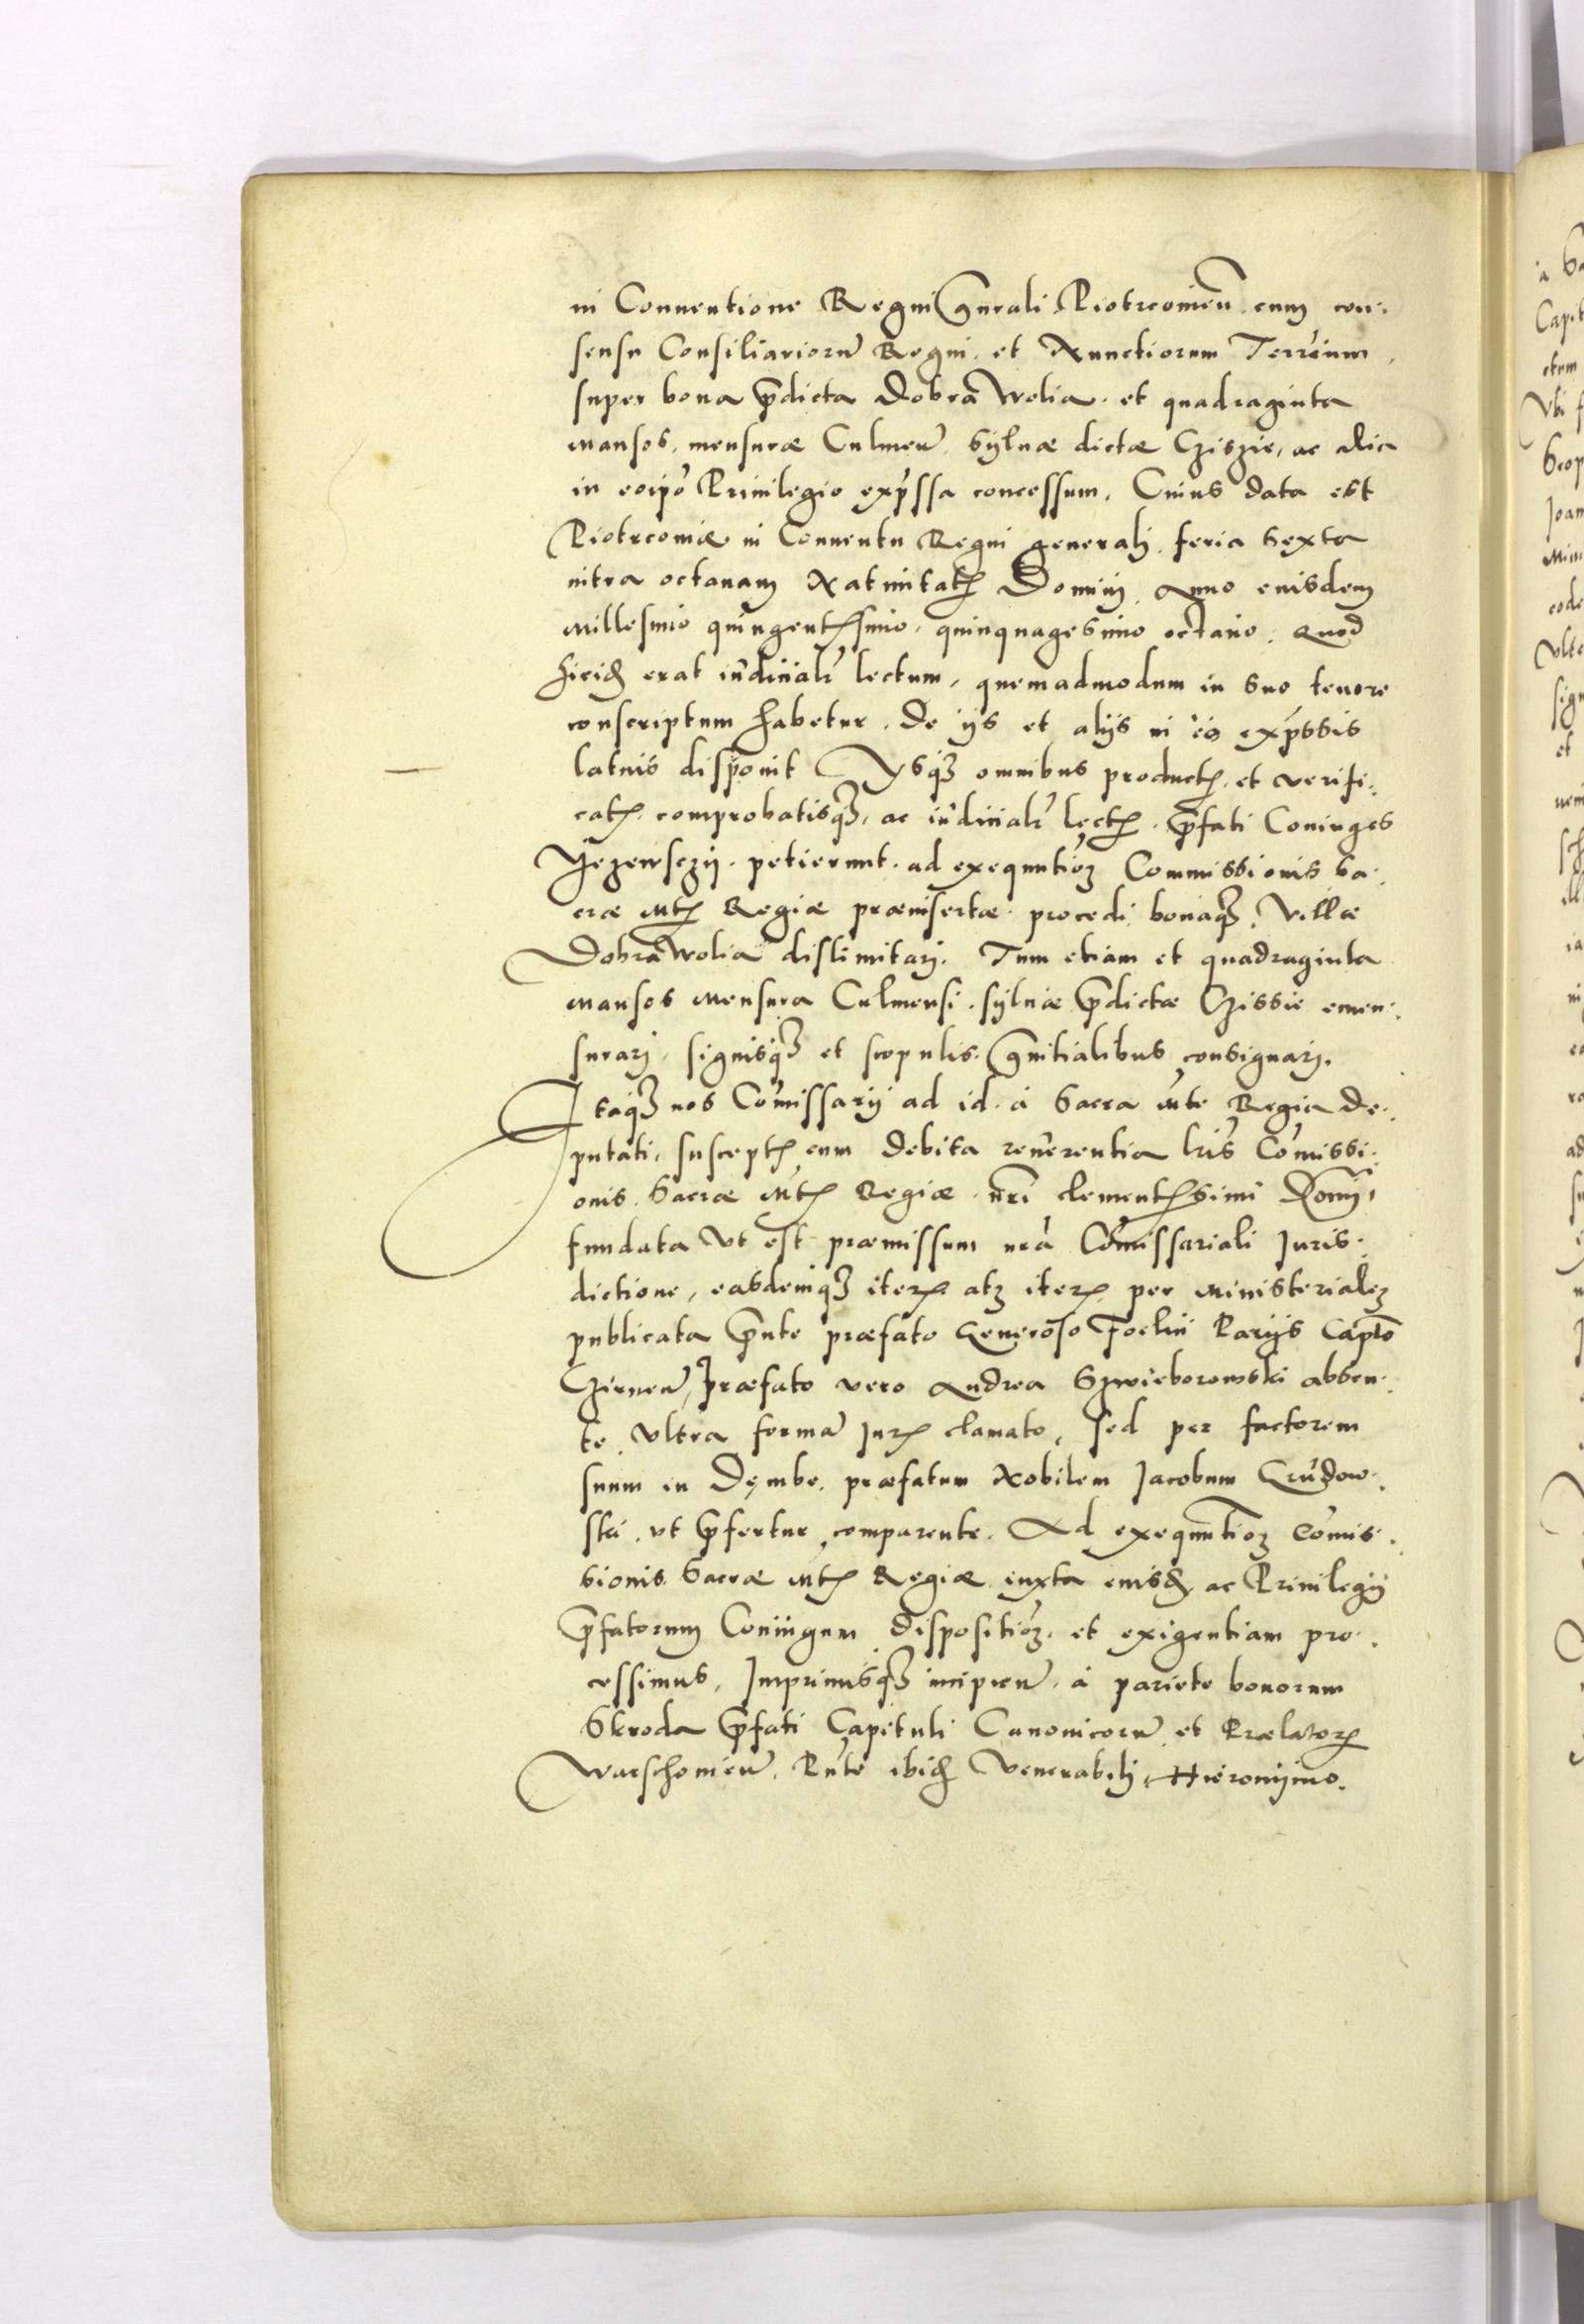 in Conuentione Regni Gnrali Piotrcouien̄ cum con-
sensu Consiliariorū Regni et Nunctiorum Terr̄ium,
super bona p̄dicta Dobra Wolia et quadraginta
mansos, mensuræ Culmeñ Syluæ dictæ Cziszie, ac alia
in eoip̄o Priuilegio exp̄ssa concessum, Cuius data est
Piotrcouiæ in Conuentu Regni generalj feria sexta
intra octauam Natiuitatꝭ Dominj Anno eiusdem
Millesimo quingentꝭsimo, quinquagesimo octauo. Quod
hicid. erat iudicialr̄ lectum, quemadmodum in suo tenore
conscriptum habetur. De ijs et alijs in eo exp̄ssis
latius disponit Ysqꝫ omnibus productꝭ et verifi-
catꝭ comprobatisqꝫ, ac iudicialr̄ lectꝭ. p̄fati Coniuges
petierunt ad exequutioꝫ Commissionis Sa-
cræ Mtꝭ Regiæ præinsertæ procedi bonaqꝫ Villæ
Dobra Wolia dislimitarj. Tum etiam et quadraginta
mansos Mensura Culmensi syluæ p̄dictæ Czissie emen-
surarj, signisqꝫ et scopulis Granitialibus consignarj.
Itaqꝫ nos Com̄issarij ad id à Sacra Mte Regia de-
putati, susceptꝭ cum debita reuerentia lris Com̄issi-
onis Sacræ Mtꝭ Regiæ nr̄i clementꝭsimi Domī,
fundata Vt est præmissum nr̄a Com̄issariali Juris-
dictione, easdemqꝫ iterꝝ atqꝫ iterꝝ per Ministerialeꝫ
publicata p̄nte præfato Generoso Foelici Parijs Capto
Czirneñ, præfato vero Andrea Szwieborowski absen-
te Vltra formā Jurꝭ clamato, sed per factorem
suum in Dembe præfatum Nobilem Jacobum Grudow-
ski vt p̄fertur comparente. Ad exequutioꝫ Com̄is-
sionis Sacræ Mtꝭ Regiæ iuxta eiusd. ac Priuilegij
p̄fatorum Coniugum dispositioꝫ et exigentiam pro-
cessimus, Imprimisqꝫ incipieñ à pariete bonorum
Skroda p̄fati Capituli Canonicorū et Prælatorꝝ
Warschouieñ. Pn̄te ibid. Venerabilj Hieronijmo